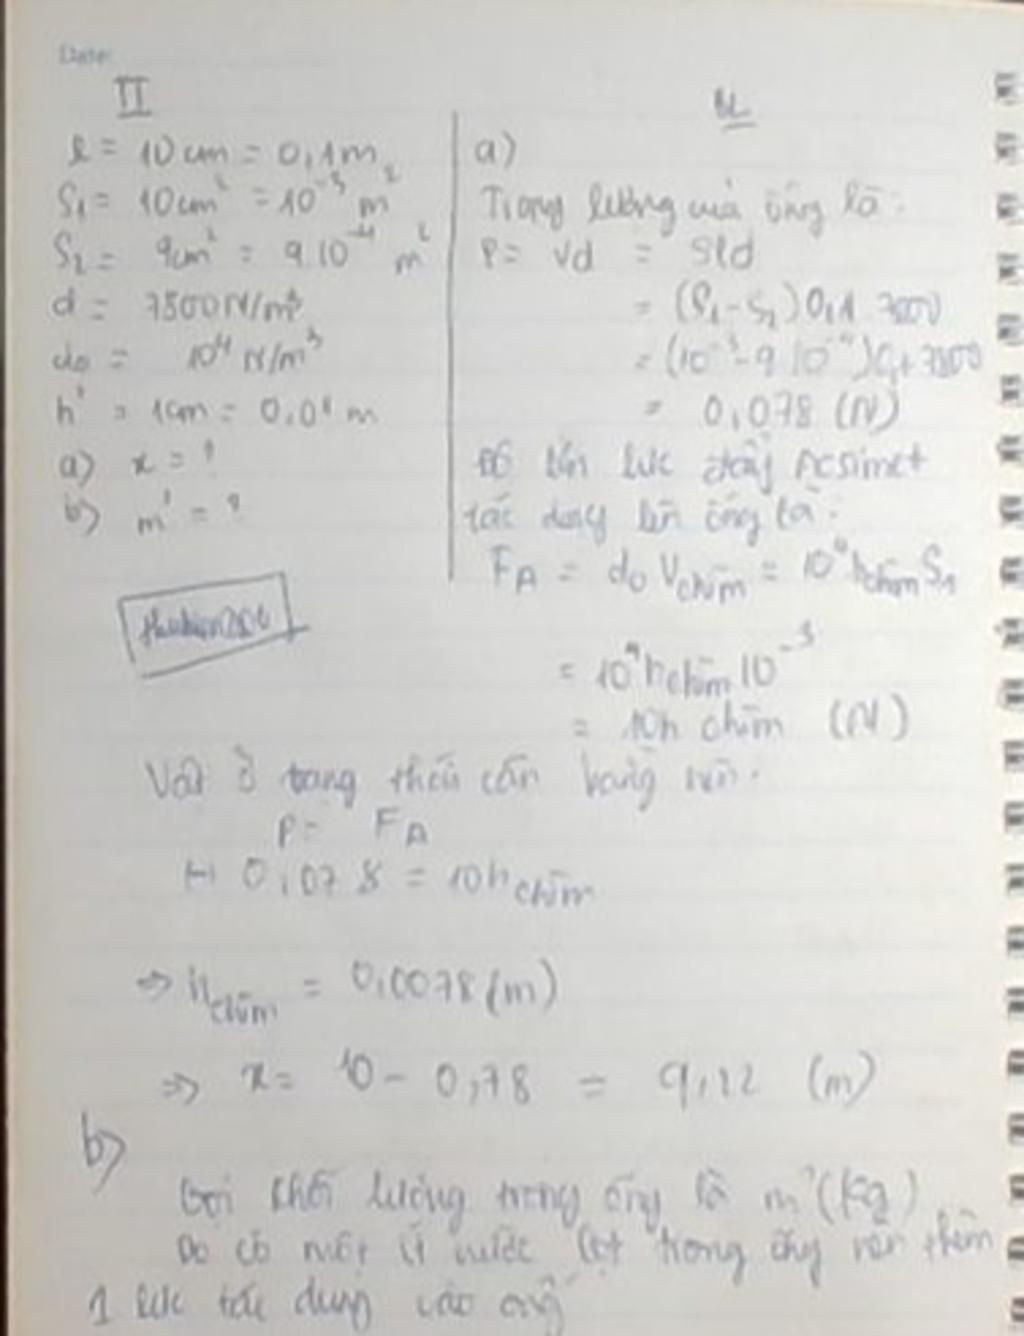 Date:
II
l = 10 cm = 0,1 m
S₁ = 10 cm² = 10⁻³ m²
S₂ = 9 cm² = 9.10⁻⁴ m²
d = 7800 N/m³
d₀ = 10⁴ N/m³
h' = 1 cm = 0,01 m
a) x = ?
b) m' = ?
BL
a)
Trọng lượng của ống là:
P = Vd = Sld
= (S₁ - S₂) 0,1 7800
= (10⁻³ - 9 10⁻⁴) 0,1 7800
= 0,078 (N)
Độ lớn lực đẩy Acsimet
tác dụng lên ống là:
F_A = d₀ V_chìm = 10⁴ h_chìm S₁
= 10⁴ h_chìm 10⁻³
= 10h chìm (N)
Vật ở trạng thái cân bằng nên:
P = F_A
0,078 = 10h_chìm
⇒ h_chìm = 0,0078 (m)
⇒ x = 10 - 0,78 = 9,12 (m)
b)
Gọi khối lượng trong ống là m' (kg)
Do có một ít nước lọt trong ống nên thêm
1 lực tác dụng vào ống